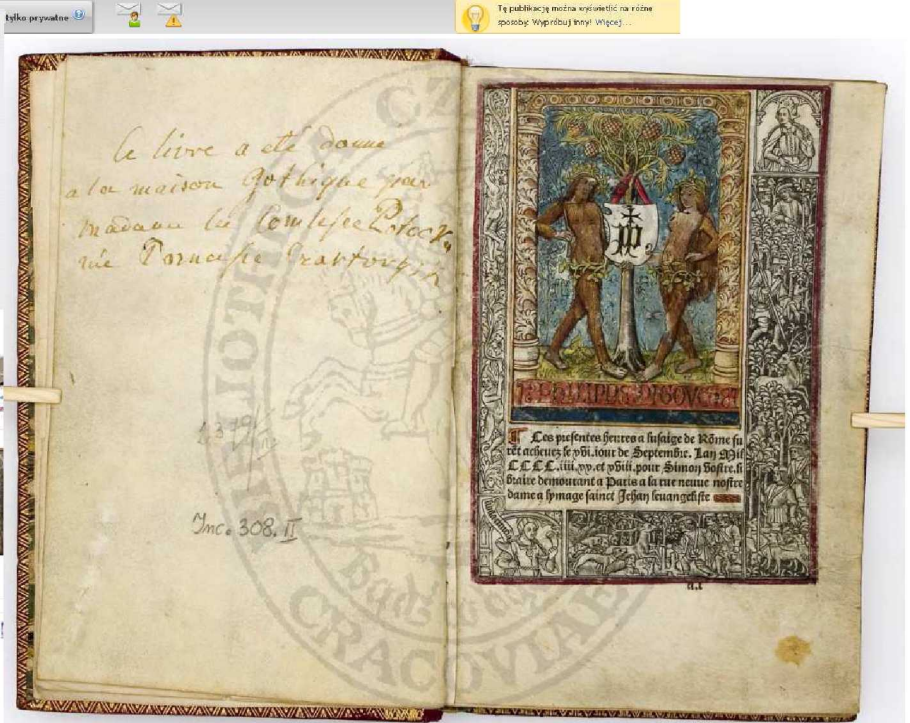 tylko prywatne
Tę publikację można wyświetlić na różne
sposoby. Wypróbuj inny! Więcej...
Ce livre a eté donné
a la maison Gothique par
madame la Comtesse Potocka
née Princesse Czartoryska
Inc. 308. II
PHILIPPUS PIGOUCHET
Ces presentes heures a lusaige de Rõme fu
rẽt acheuez le xvi. iour de Septembre. Lan Mil
CCCC.iiii.xx.et xviii. pour Simon Vostre. li
braire demourant a Paris a la rue neuue nostre
dame a lymage sainct Jehan leuangeliste
a.i
BIBLIOTHECA CZ
CRACOVIAE